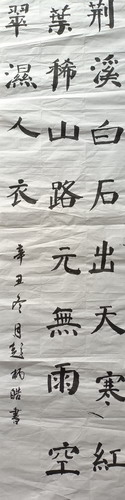 荆溪白石出天寒紅
葉稀山路元無雨空
翠濕人衣
辛丑冬月彭
書